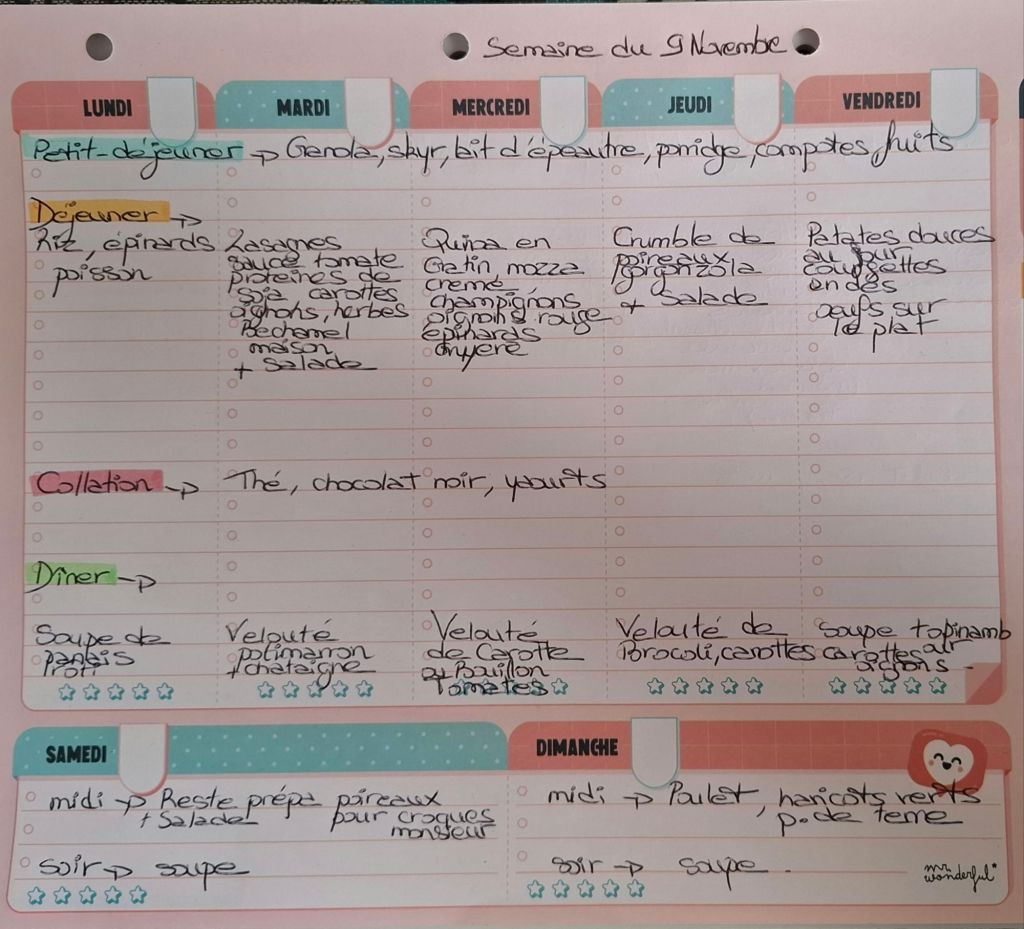 Semaine du 9 Novembre
LUNDI MARDI MERCREDI JEUDI VENDREDI
Petit-déjeuner → Genola, skyr, lait d'épeautre, porridge, compotes, fruits
Déjeuner →
Riz, épinards
poisson
Lasagnes
sauce tomate
protéines de
soja carottes
oignons, herbes
Bechamel
maison
+ Salade
Quinoa en
Gratin, mozza
creme
champignons
oignons rouge
épinards
gruyere
Crumble de
poireaux
gorgonzola
+ Salade
Patates douces
au four
courgettes
en dés
oeufs sur
le plat
Collation → Thé, chocolat noir, yaourts
Dîner →
Soupe de
panais
Velouté
potimarron
+ chataigne
Velouté
de Carotte
ou Bouillon
Tomates
Velouté de
Brocoli, carottes
soupe topinamb
carottes
oignons
SAMEDI
midi → Reste prépa poireaux
+ Salade pour croques
monsieur
soir → soupe
DIMANCHE
midi → Poulet, haricots verts
p. de terre
soir → soupe.
mr.
wonderful*